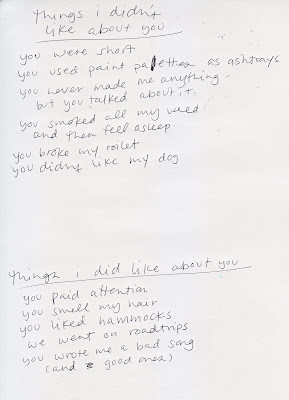 things i didn't
like about you
you were short
you used paint palettes as ashtrays
you never made me anything -
but you talked about it.
you smoked all my weed
and then feel asleep
you broke my toilet
you didn't like my dog
things i did like about you
you paid attention
you smell my hair
you liked hammocks
we went on roadtrips
you wrote me a bad song
(and good ones)